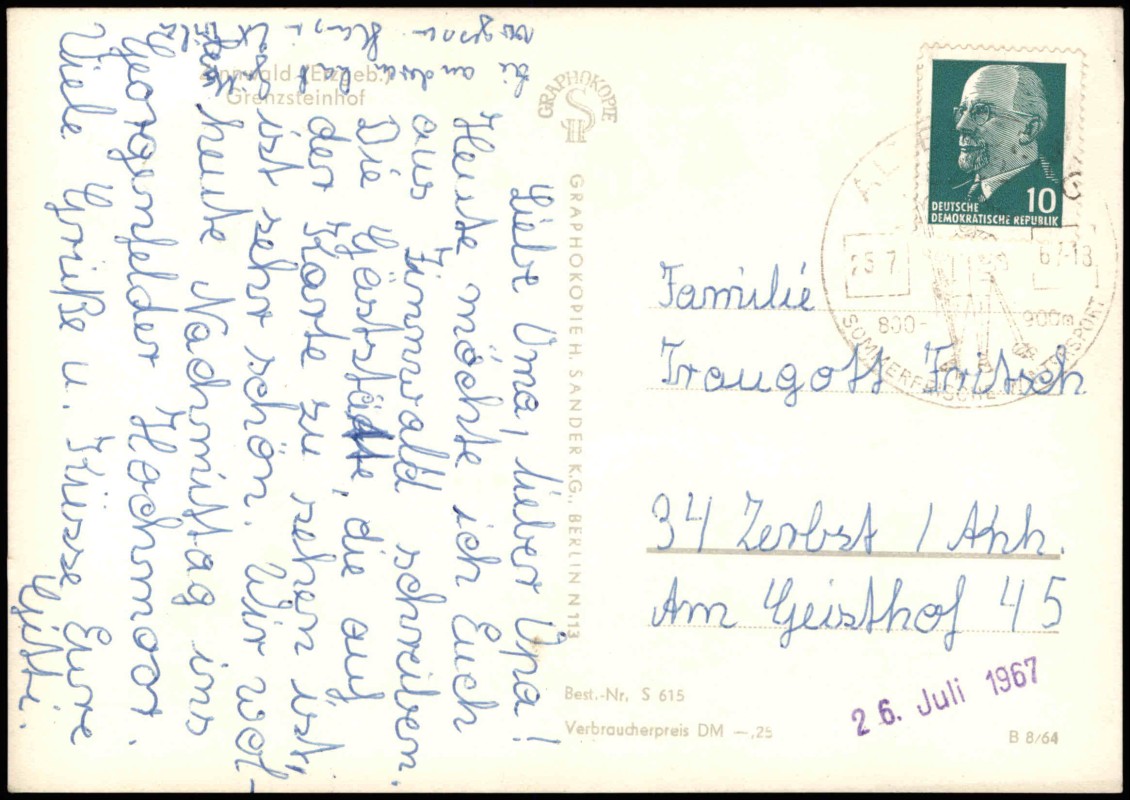 Zinnwald (Erzgeb.)
Grenzsteinhof
GRAPHOKOPIE
GRAPHOKOPIE H. SANDER K.G., BERLIN N 113
Liebe Oma, lieber Opa!
Heute möchte ich Euch
aus Zinnwald schreiben.
Die Gaststätte, die auf
der Karte zu sehen ist,
ist sehr schön. Wir wol-
heute Nachmittag ins
Georgenfelder Hochmoor.
Viele Grüße u. Küsse Eure
Gitti.
DEUTSCHE
DEMOKRATISCHE REPUBLIK
10
67-18
800-
900m
SOMMERFRISCHE WINTERSPORT
Familie
Traugott Fritsch
34 Zerbst / Anh.
Am Geisthof 45
26. Juli 1967
Best.-Nr. S 615
Verbraucherpreis DM —,25
B 8/64